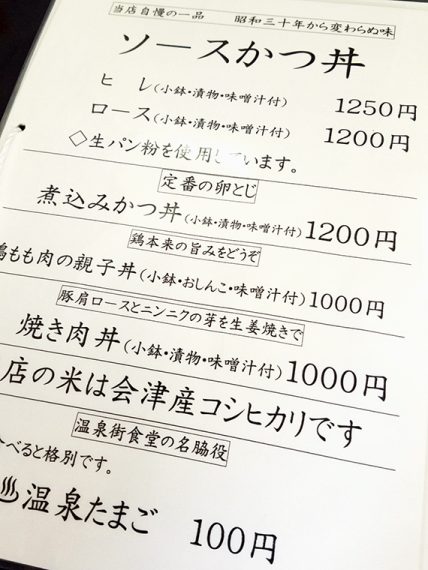 当店自慢の一品 昭和三十年から変わらぬ味
ソースかつ丼
ヒレ(小鉢・漬物・味噌汁付) 1250円
ロース(小鉢・漬物・味噌汁付) 1200円
◇生パン粉を使用しています。
定番の卵とじ
煮込みかつ丼(小鉢・漬物・味噌汁付) 1200円
鶏本来の旨みをどうぞ
鶏もも肉の親子丼(小鉢・おしんこ・味噌汁付) 1000円
豚肩ロースとニンニクの芽を生姜焼きで
焼き肉丼(小鉢・漬物・味噌汁付) 1000円
店の米は会津産コシヒカリです
温泉街食堂の名脇役
べると格別です。
♨温泉たまご 100円